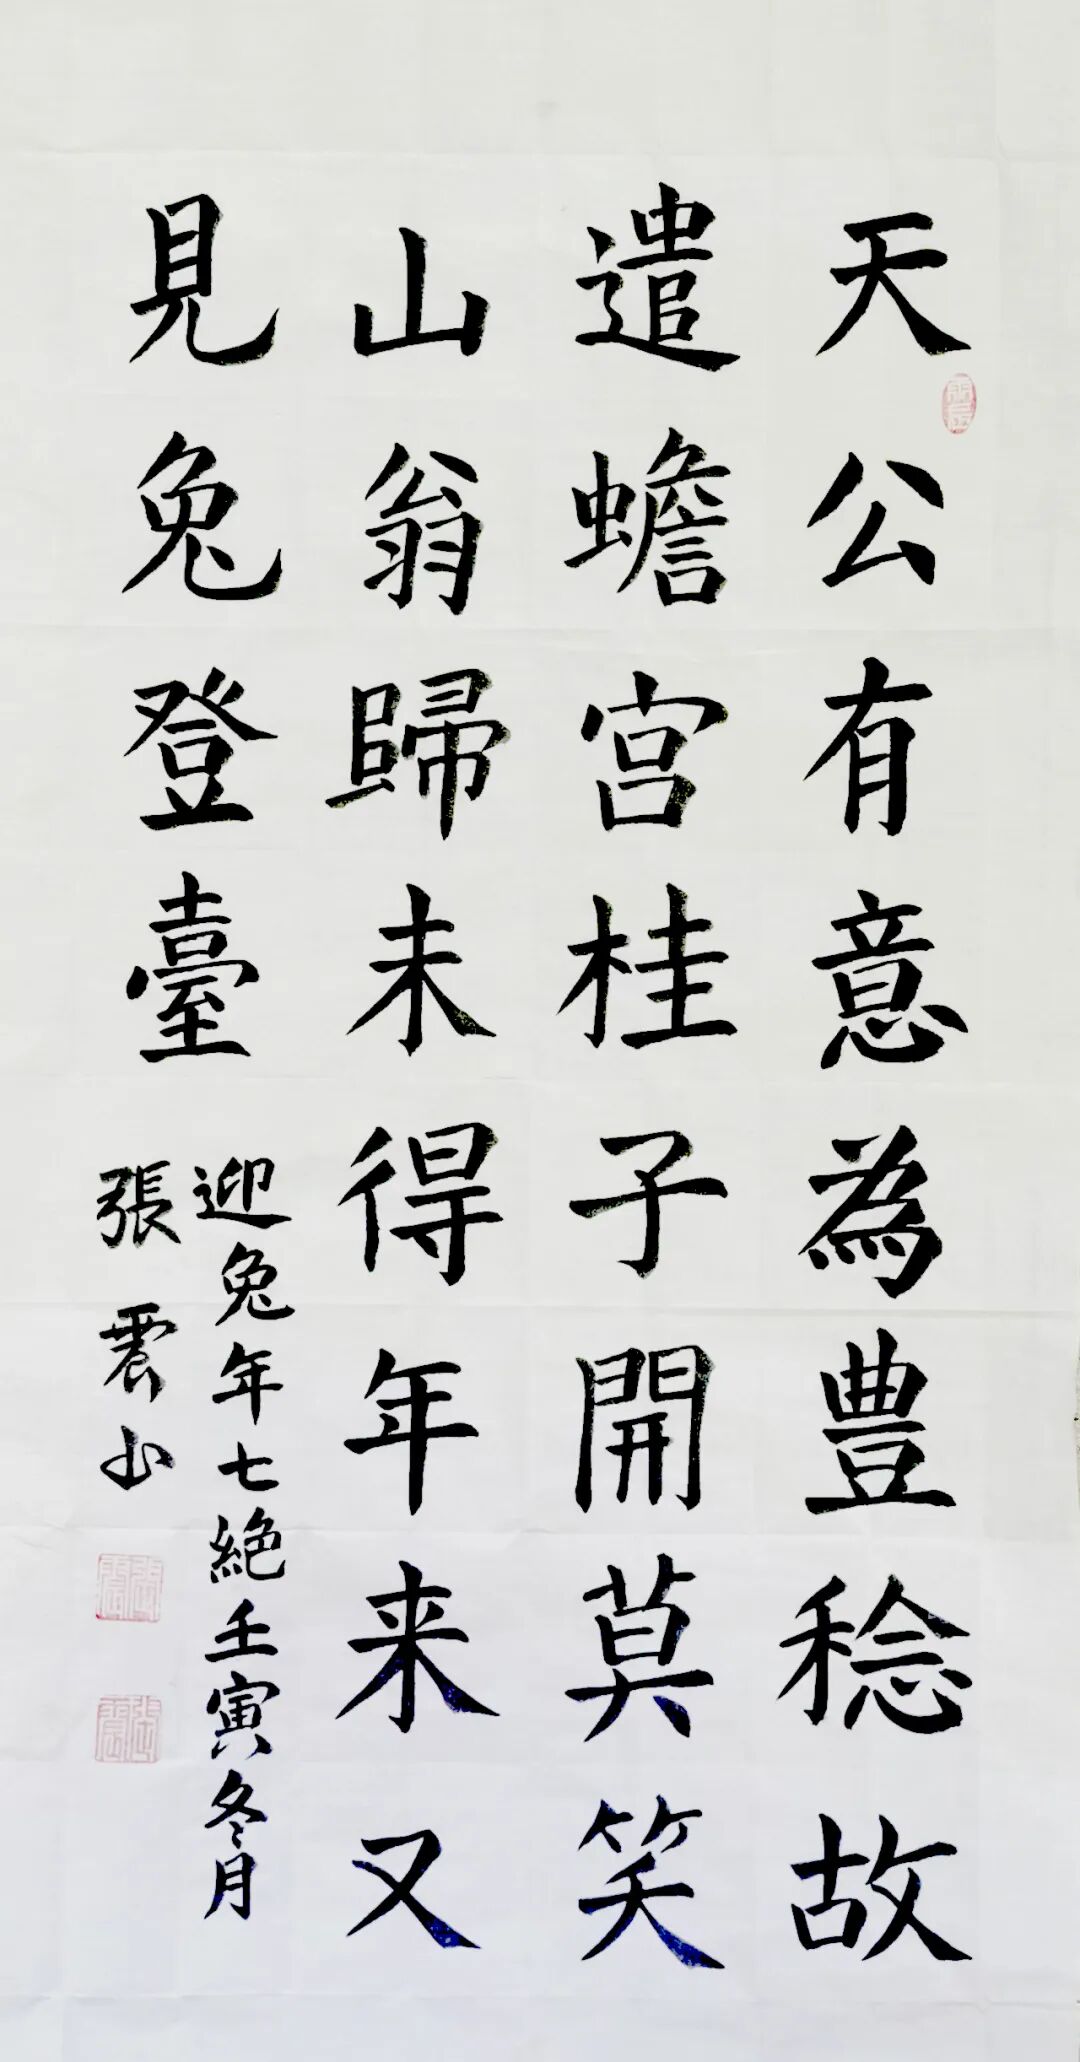 天公有意為豊稔故
遣蟾宮桂子開莫笑
山翁歸未得年来又
見兔登臺
迎兔年七絕壬寅冬月
張震书